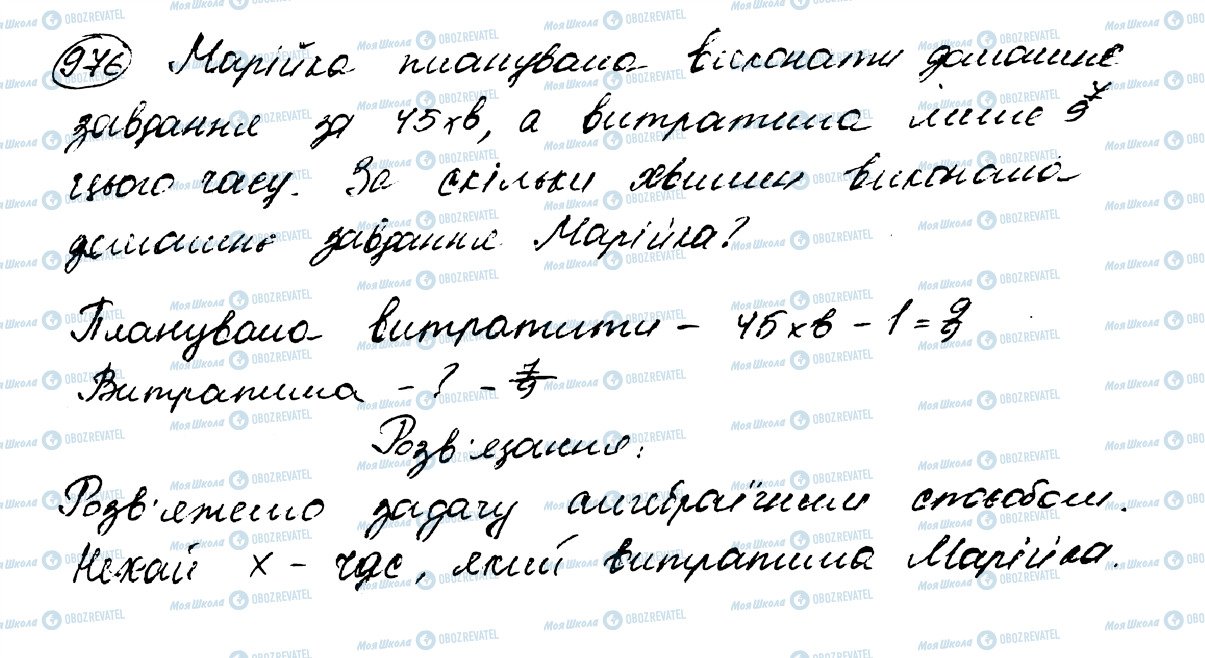 976 Марійка планувала виконати домашнє
завдання за 45 хв, а витратила лише 7/9
цього часу. За скільки хвилин виконала
домашнє завдання Марійка?
Планувала витратити – 45 хв – 1 = 9/9
Витратила – ? – 7/9
Розв'язання:
Розв'яжемо задачу алгебраїчним способом.
Нехай x – час, який витратила Марійка.